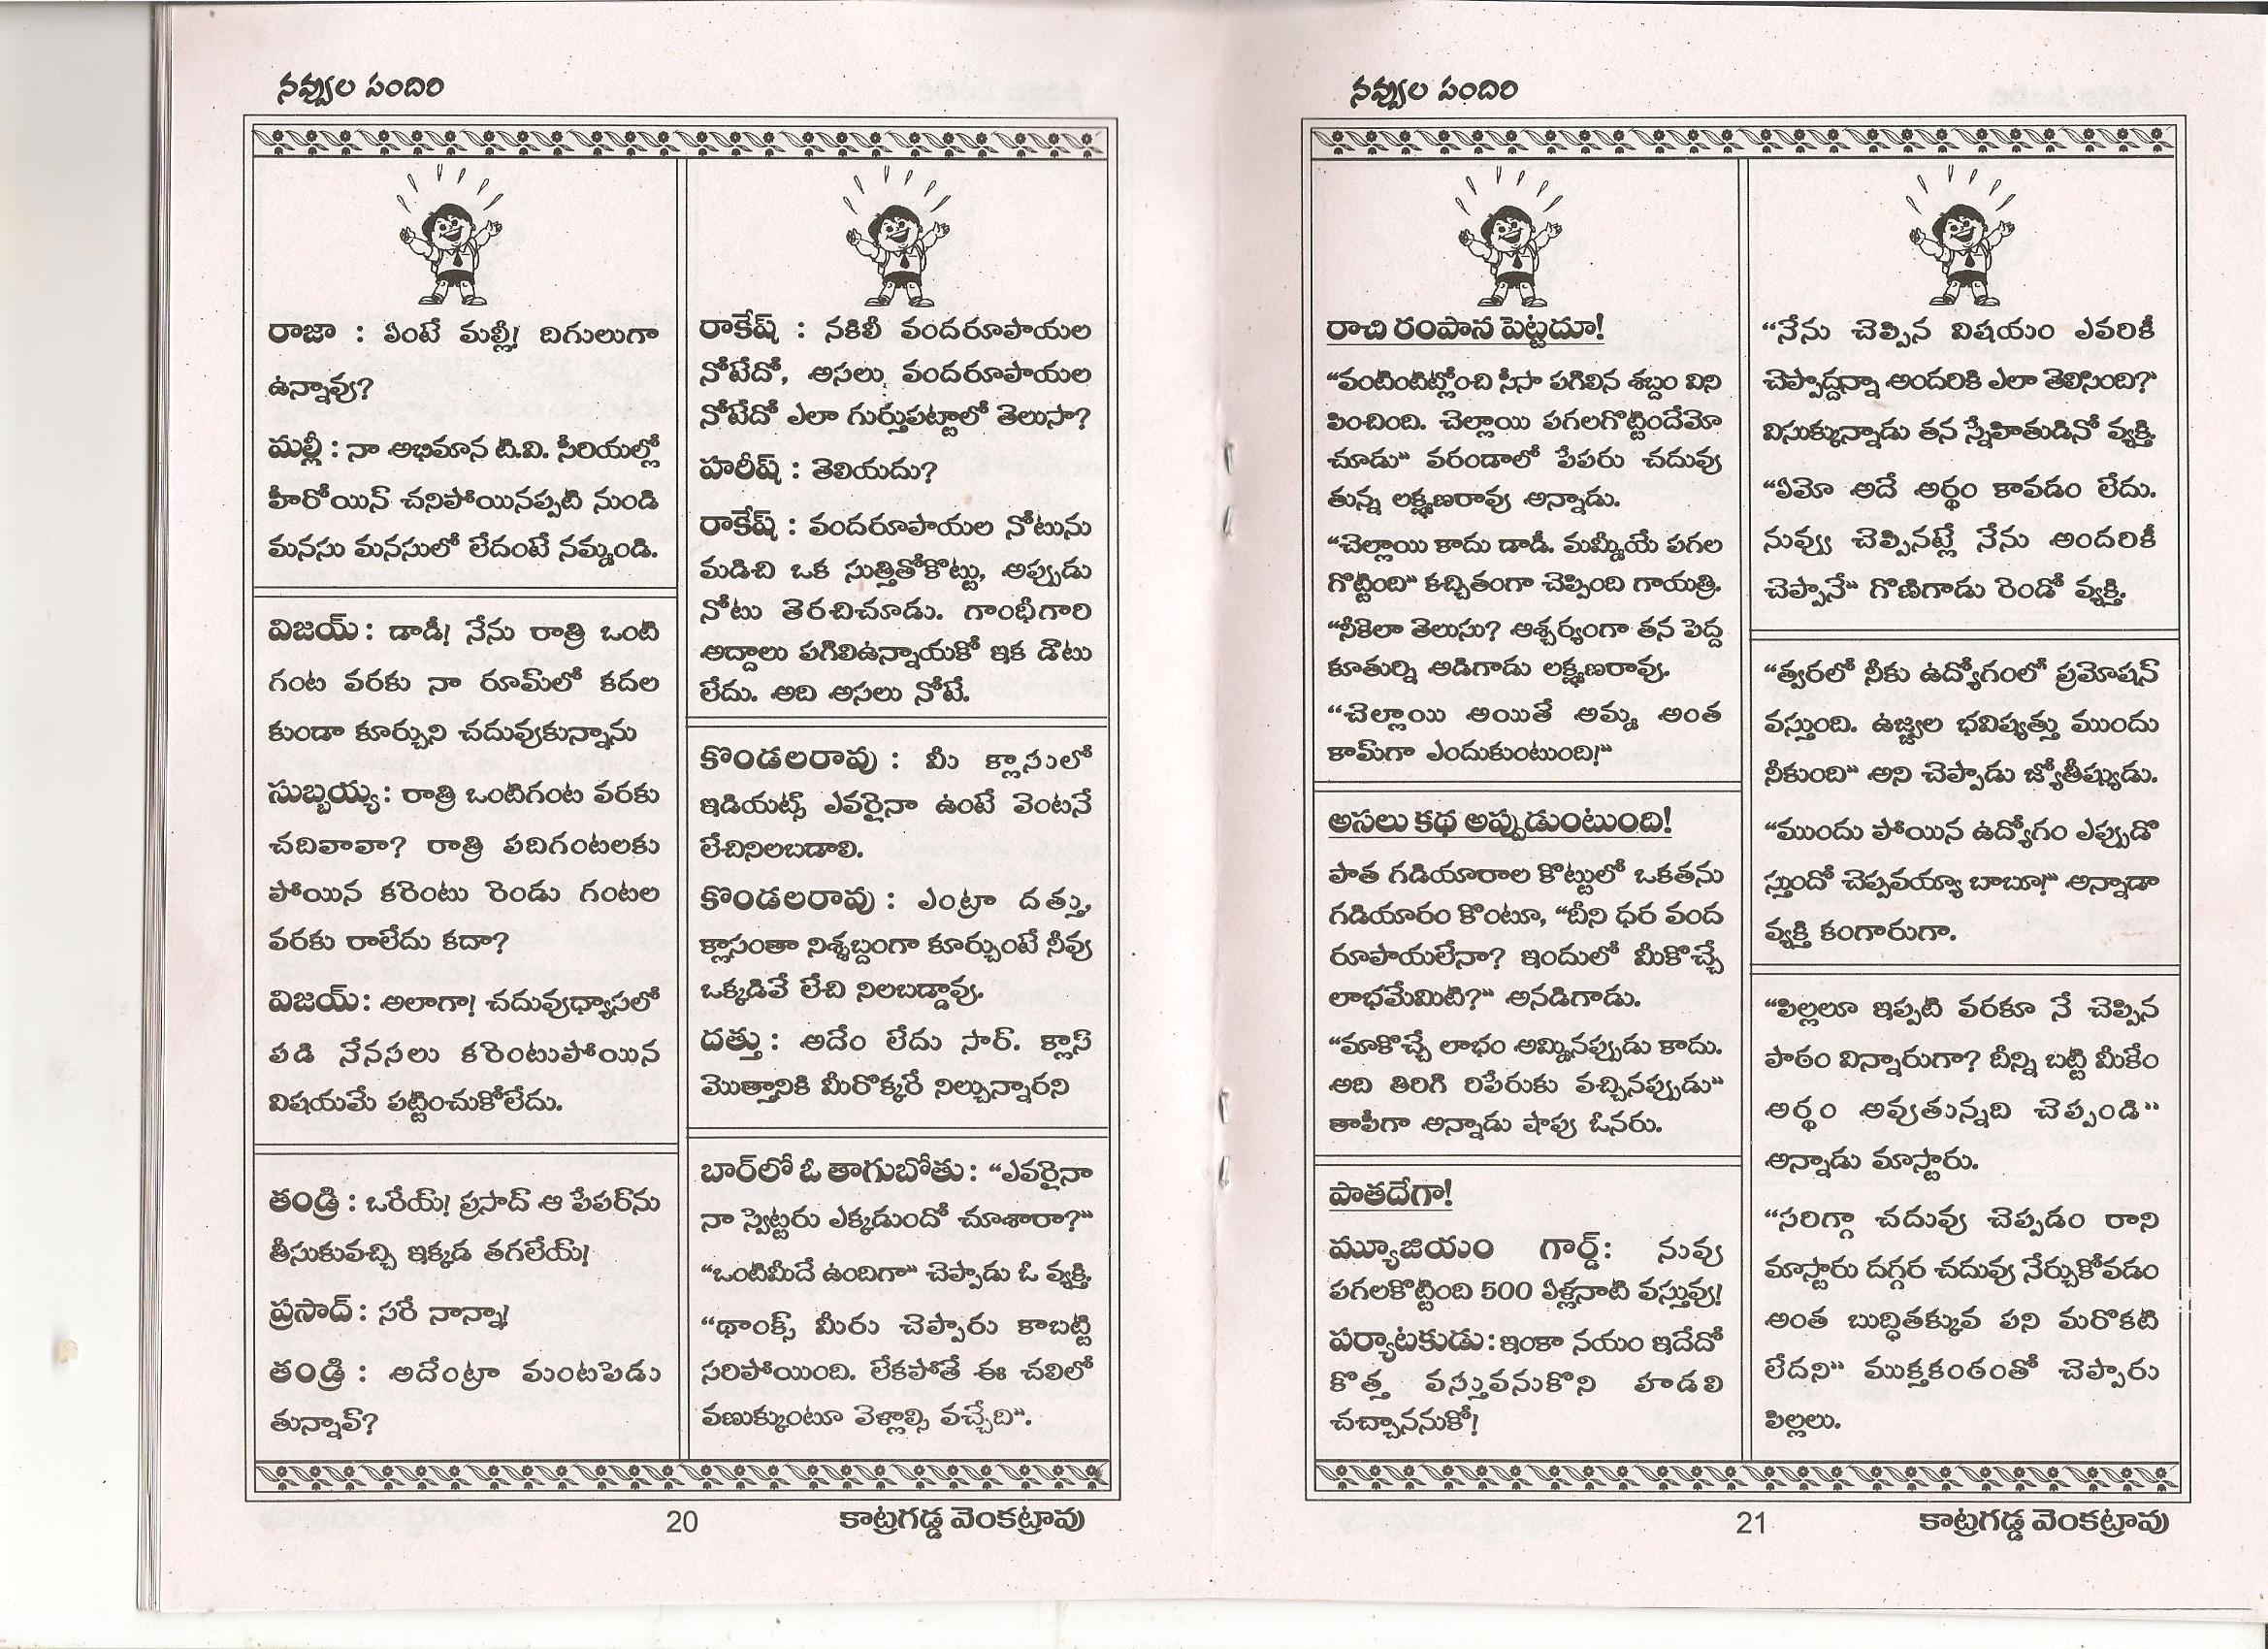 నవ్వుల పందిరి
రాజా : ఏంటే మల్లీ! దిగులుగా
ఉన్నావు?
మల్లీ : నా అభిమాన టి.వి. సీరియల్లో
హీరోయిన్ చనిపోయినప్పటి నుండి
మనసు మనసులో లేదంటే నమ్మండి.
విజయ్ : డాడీ! నేను రాత్రి ఒంటి
గంట వరకు నా రూమ్‌లో కదల
కుండా కూర్చుని చదువుకున్నాను
సుబ్బయ్య : రాత్రి ఒంటిగంట వరకు
చదివావా? రాత్రి పదిగంటలకు
పోయిన కరెంటు రెండు గంటల
వరకు రాలేదు కదా?
విజయ్ : అలాగా! చదువుధ్యాసలో
పడి నేనసలు కరెంటుపోయిన
విషయమే పట్టించుకోలేదు.
తండ్రి : ఒరేయ్! ప్రసాద్ ఆ పేపర్‌ను
తీసుకువచ్చి ఇక్కడ తగలేయ్!
ప్రసాద్ : సరే నాన్నా!
తండ్రి : అదేంట్రా మంటపెడు
తున్నావ్?
రాకేష్ : నకిలీ వందరూపాయల
నోటేదో, అసలు వందరూపాయల
నోటేదో ఎలా గుర్తుపట్టాలో తెలుసా?
హరీష్ : తెలియదు?
రాకేష్ : వందరూపాయల నోటును
మడిచి ఒక సుత్తితోకొట్టు, అప్పుడు
నోటు తెరచిచూడు. గాంధీగారి
అద్దాలు పగిలిఉన్నాయకో ఇక డౌటు
లేదు. అది అసలు నోటే.
కొండలరావు : మీ క్లాసులో
ఇడియట్స్ ఎవరైనా ఉంటే వెంటనే
లేచినిలబడాలి.
కొండలరావు : ఎంట్రా దత్తు,
క్లాసంతా నిశ్శబ్దంగా కూర్చుంటే నీవు
ఒక్కడివే లేచి నిలబడ్డావు.
దత్తు : అదేం లేదు సార్. క్లాస్
మొత్తానికి మీరొక్కరే నిల్చున్నారని
బార్‌లో ఓ తాగుబోతు : “ఎవరైనా
నా స్వెట్టరు ఎక్కడుందో చూశారా?”
“ఒంటిమీదే ఉందిగా” చెప్పాడు ఓ వ్యక్తి.
“థాంక్స్ మీరు చెప్పారు కాబట్టి
సరిపోయింది. లేకపోతే ఈ చలిలో
వణుక్కుంటూ వెళ్లాల్సి వచ్చేది”.
20
కాట్రగడ్డ వెంకట్రావు
నవ్వుల పందిరి
రాచి రంపాన పెట్టదూ!
“వంటింటిట్లోంచి సీసా పగిలిన శబ్దం విని
పించింది. చెల్లాయి పగలగొట్టిందేమో
చూడు” వరండాలో పేపరు చదువు
తున్న లక్ష్మణరావు అన్నాడు.
“చెల్లాయి కాదు డాడీ. మమ్మీయే పగల
గొట్టింది” కచ్చితంగా చెప్పింది గాయత్రి.
“నీకెలా తెలుసు? ఆశ్చర్యంగా తన పెద్ద
కూతుర్ని అడిగాడు లక్ష్మణరావు.
“చెల్లాయి అయితే అమ్మ అంత
కామ్‌గా ఎందుకుంటుంది!”
అసలు కథ అప్పుడుంటుంది!
పాత గడియారాల కొట్టులో ఒకతను
గడియారం కొంటూ, “దీని ధర వంద
రూపాయలేనా? ఇందులో మీకొచ్చే
లాభమేమిటి?” అనడిగాడు.
“మాకొచ్చే లాభం అమ్మినప్పుడు కాదు.
అది తిరిగి రిపేరుకు వచ్చినప్పుడు”
తాపీగా అన్నాడు షాపు ఓనరు.
పాతదేగా!
మ్యూజియం గార్డ్ : నువ్వు
పగలకొట్టింది 500 ఏళ్లనాటి వస్తువు!
పర్యాటకుడు : ఇంకా నయం ఇదేదో
కొత్త వస్తువనుకొని హడలి
చచ్చాననుకో!
“నేను చెప్పిన విషయం ఎవరికీ
చెప్పొద్దన్నా అందరికి ఎలా తెలిసింది?”
విసుక్కున్నాడు తన స్నేహితుడినో వ్యక్తి.
“ఏమో అదే అర్థం కావడం లేదు.
నువ్వు చెప్పినట్లే నేను అందరికీ
చెప్పానే” గొణిగాడు రెండో వ్యక్తి.
“త్వరలో నీకు ఉద్యోగంలో ప్రమోషన్
వస్తుంది. ఉజ్జ్వల భవిష్యత్తు ముందు
నీకుంది” అని చెప్పాడు జ్యోతీష్యుడు.
“ముందు పోయిన ఉద్యోగం ఎప్పుడొ
స్తుందో చెప్పవయ్యా బాబూ!” అన్నాడా
వ్యక్తి కంగారుగా.
“పిల్లలూ ఇప్పటి వరకూ నే చెప్పిన
పాఠం విన్నారుగా? దీన్ని బట్టి మీకేం
అర్థం అవ్వుతున్నది చెప్పండి”
అన్నాడు మాస్టారు.
“సరిగ్గా చదువు చెప్పడం రాని
మాస్టారు దగ్గర చదువు నేర్చుకోవడం
అంత బుద్ధితక్కువ పని మరొకటి
లేదని” ముక్తకంఠంతో చెప్పారు
పిల్లలు.
21
కాట్రగడ్డ వెంకట్రావు